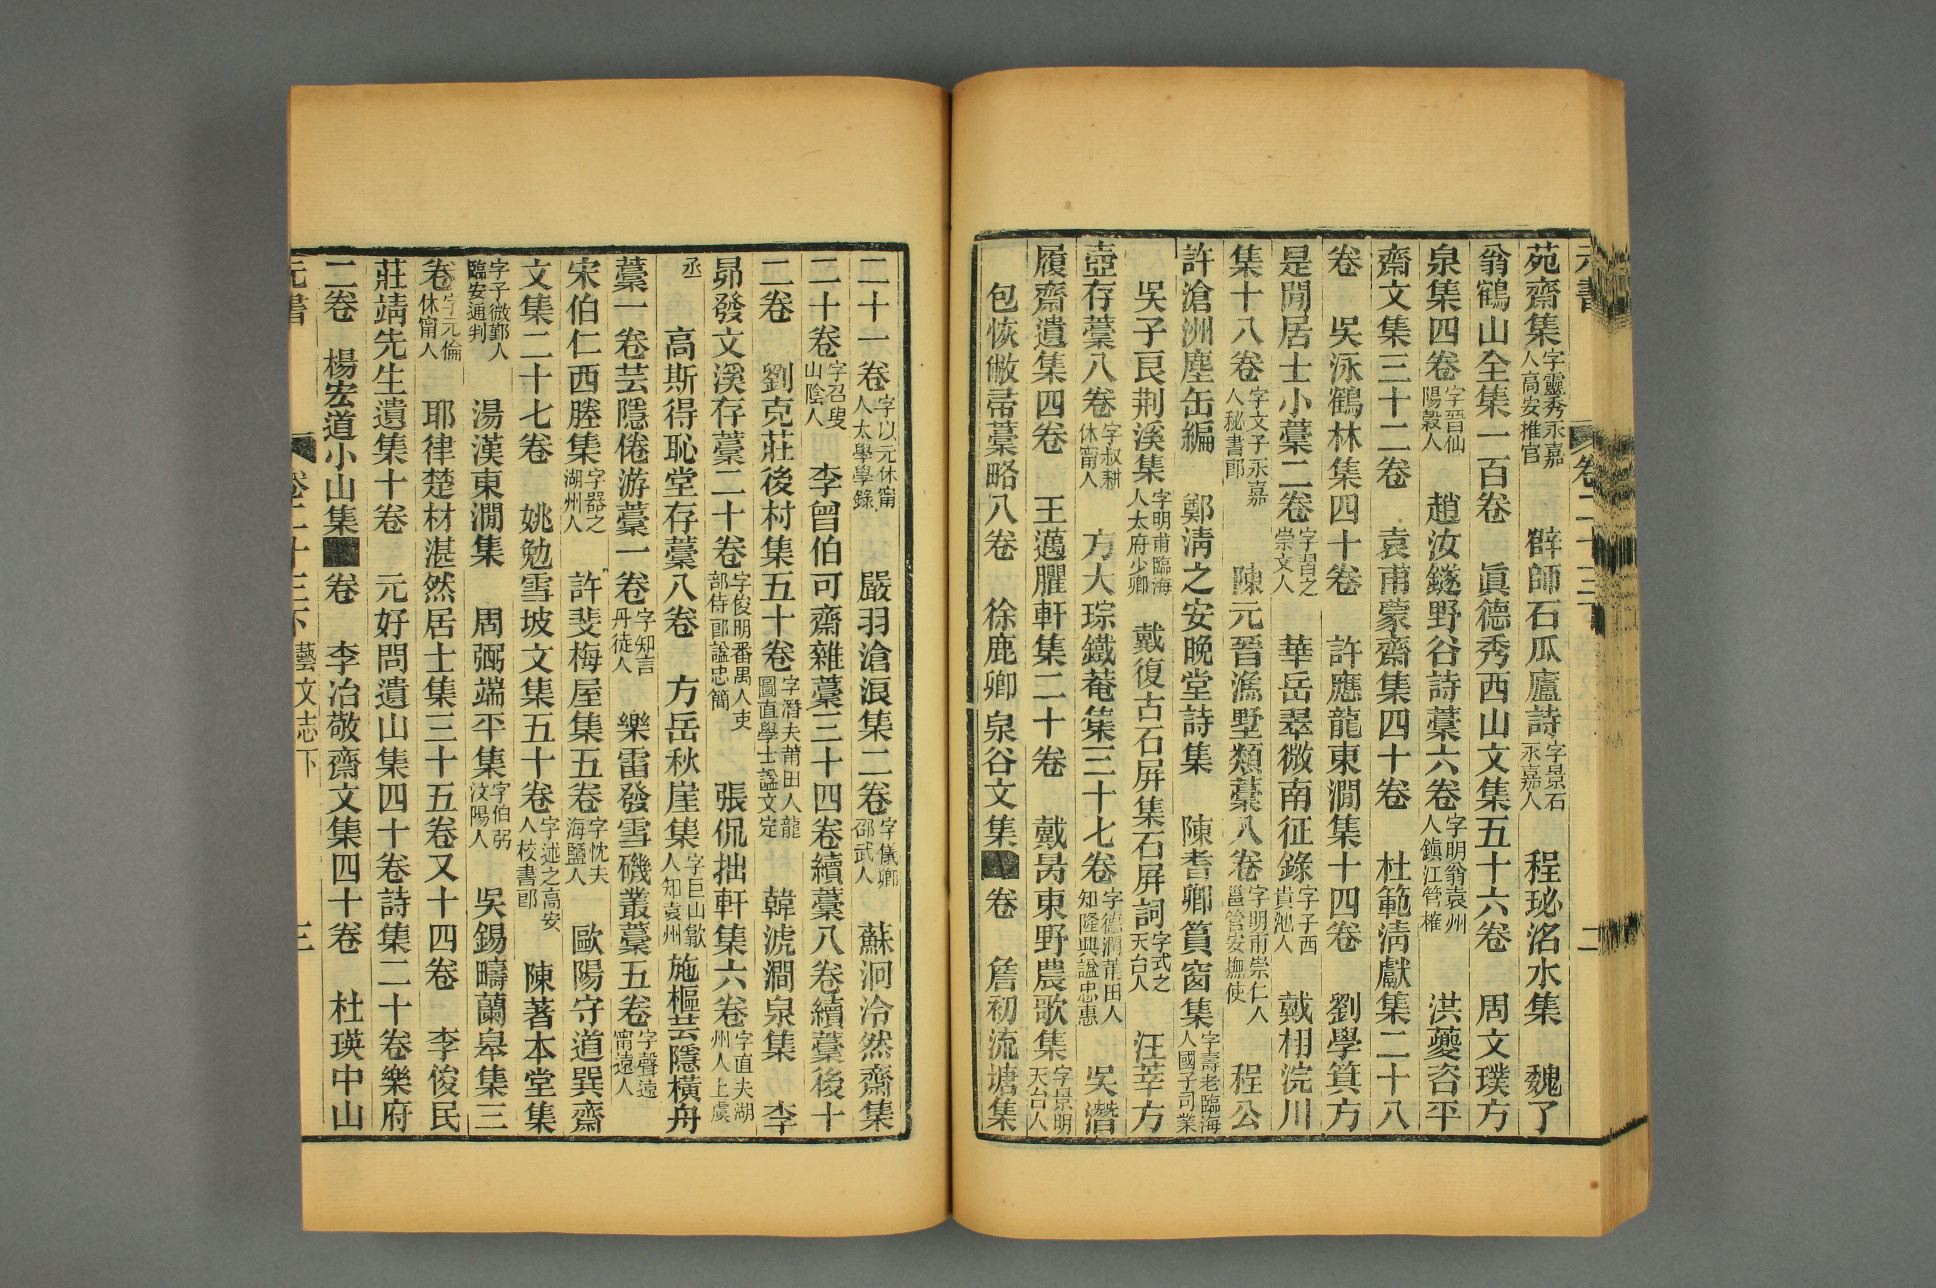 元書 卷二十三下 二
苑齋集字靈秀永嘉人高安推官 薛師石瓜廬詩字景石永嘉人 程珌洺水集 魏了
翁鶴山全集一百卷 眞德秀西山文集五十六卷 周文璞方
泉集四卷字晉仙陽穀人 趙汝鐩野谷詩藁六卷字明翁袁州人鎮江管榷 洪夔咨平
齋文集三十二卷 袁甫蒙齋集四十卷 杜範淸獻集二十八
卷 吳泳鶴林集四十卷 許應龍東澗集十四卷 劉學箕方
是閒居士小藁二卷字習之崇文人 華岳翠微南征錄字子西貴池人 戴栩浣川
集十八卷字文子永嘉人秘書郎 陳元晉漁墅類藁八卷字明甫崇仁人邕管安撫使 程公
許滄洲塵缶編 鄭淸之安晚堂詩集 陳耆卿篔窗集字壽老臨海人國子司業
吳子良荆溪集字明甫臨海人太府少卿 戴復古石屏集石屏詞字式之天台人 汪莘方
壺存藁八卷字叔耕休甯人 方大琮鐵菴集三十七卷字德潤莆田人知隆興謚忠惠 吳潛
履齋遺集四卷 王邁臞軒集二十卷 戴昺東野農歌集字景明天台人
包恢敝帚藁略八卷 徐鹿卿泉谷文集■卷 詹初流塘集
二十一卷字以元休甯人太學學錄 嚴羽滄浪集二卷字儀卿邵武人 蘇泂泠然齋集
二十卷字召叟山陰人 李曾伯可齋雜藁三十四卷續藁八卷續藁後十
二卷 劉克莊後村集五十卷字潛夫莆田人龍圖直學士謚文定 韓淲澗泉集 李
昴發文溪存藁二十卷字俊明番禺人吏部侍郎謚忠簡 張侃拙軒集六卷字直夫湖州人上虞丞
高斯得恥堂存藁八卷 方岳秋崖集字巨山歙人知袁州 施樞芸隱橫舟
藁一卷芸隱倦游藁一卷字知言丹徒人 樂雷發雪磯叢藁五卷字聲遠甯遠人
宋伯仁西塍集字器之湖州人 許棐梅屋集五卷字忱夫海鹽人 歐陽守道巽齋
文集二十七卷 姚勉雪坡文集五十卷字述之高安人校書郎 陳著本堂集
字子微鄞人臨安通判 湯漢東澗集 周弼端平集字伯弼汶陽人 吳錫疇蘭皐集三
卷字元倫休甯人 耶律楚材湛然居士集三十五卷又十四卷 李俊民
莊靖先生遺集十卷 元好問遺山集四十卷詩集二十卷樂府
二卷 楊宏道小山集■卷 李冶敬齋文集四十卷 杜瑛中山
元書 卷二十三下 藝文志下 三